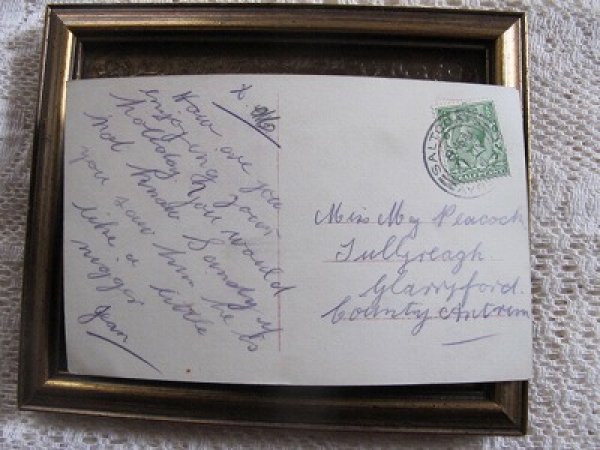 How are you
enjoying your
holiday. You would
not know Sandy if
you saw him he is
like a little
nigger
Jean
Miss May Peacock
Tullyreagh.
Glarryford.
County Antrim
SALTCOATS